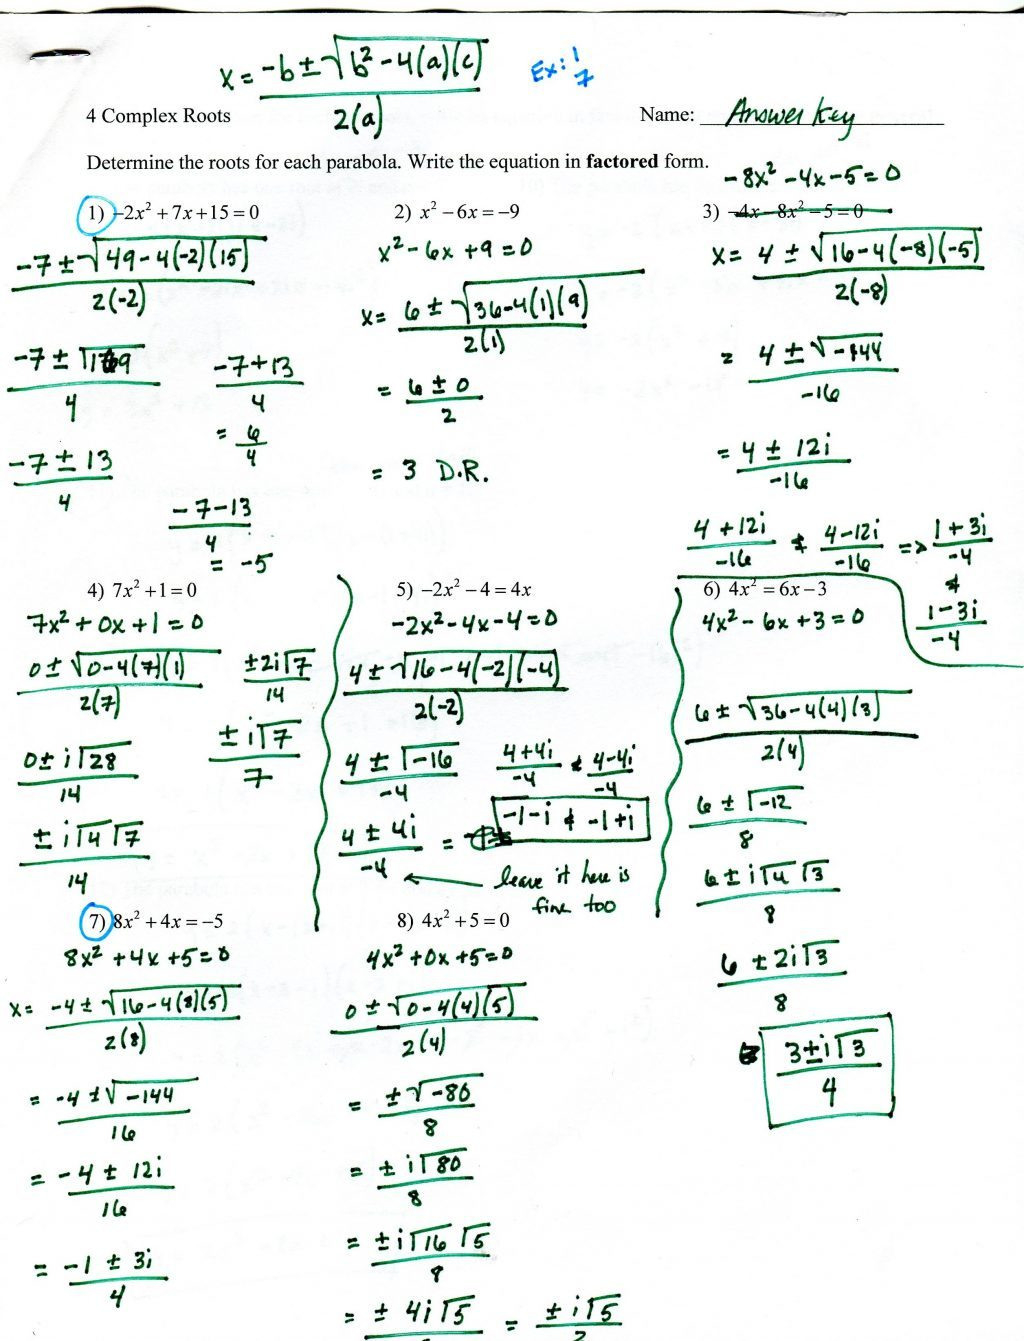 x = -b ± √b² - 4(a)(c)
2(a)
Ex: 1
7
4 Complex Roots
Name: Answer Key
Determine the roots for each parabola. Write the equation in factored form.
1) -2x² + 7x + 15 = 0
-7 ± √49 - 4(-2)(15)
2(-2)
-7 ± √169
4
-7 ± 13
4
-7 + 13
4
= 6
4
-7 - 13
4
= -5
2) x² - 6x = -9
x² - 6x + 9 = 0
x = 6 ± √36 - 4(1)(9)
2(1)
= 6 ± 0
2
= 3 D.R.
-8x² - 4x - 5 = 0
3) -4x - 8x² - 5 = 0
x = 4 ± √16 - 4(-8)(-5)
2(-8)
= 4 ± √-144
-16
= 4 ± 12i
-16
4 + 12i & 4 - 12i => 1 + 3i
-16 -16 -4
&
1 - 3i
-4
4) 7x² + 1 = 0
7x² + 0x + 1 = 0
0 ± √0 - 4(7)(1)
2(7)
0 ± i√28
14
± i√4 √7
14
± 2i√7
14
± i√7
7
5) -2x² - 4 = 4x
-2x² - 4x - 4 = 0
4 ± √16 - 4(-2)(-4)
2(-2)
4 ± √-16
-4
4 ± 4i =
-4
4 + 4i & 4 - 4i
-4 -4
-1 - i & -1 + i
leave it here is
fine too
6) 4x² = 6x - 3
4x² - 6x + 3 = 0
6 ± √36 - 4(4)(3)
2(4)
6 ± √-12
8
6 ± i√4 √3
8
6 ± 2i√3
8
3 ± i√3
4
7) 8x² + 4x = -5
8x² + 4x + 5 = 0
x = -4 ± √16 - 4(8)(5)
2(8)
= -4 ± √-144
16
= -4 ± 12i
16
= -1 ± 3i
4
8) 4x² + 5 = 0
4x² + 0x + 5 = 0
0 ± √0 - 4(4)(5)
2(4)
= ± √-80
8
= ± i√80
8
= ± i√16 √5
8
= ± 4i√5 = ± i√5